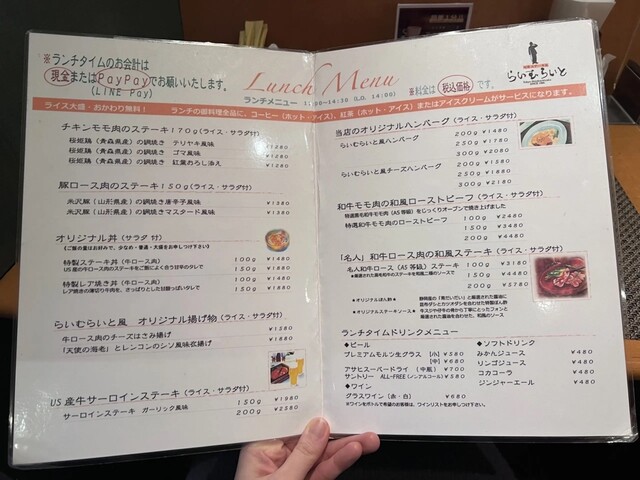 ※ランチタイムのお会計は
現金またはPayPayでお願いいたします。
(LINE Pay)
Lunch Menu
ランチメニュー 11:00～14:30 (L.O. 14:00)
※料金は 税込価格 です。
らいむらいと
ライス大盛・おかわり無料！ ランチの御料理全品に、コーヒー(ホット・アイス)、紅茶(ホット・アイス)またはアイスクリームがサービスになります。
チキンモモ肉のステーキ170g(ライス・サラダ付)
桜姫鶏(青森県産)の鋼焼き テリヤキ風味 ¥1280
桜姫鶏(青森県産)の鋼焼き ゴマ風味 ¥1280
桜姫鶏(青森県産)の鋼焼き 紅葉おろし添え ¥1280
豚ロース肉のステーキ150g(ライス・サラダ付)
米沢豚(山形県産)の鋼焼き唐辛子風味 ¥1380
米沢豚(山形県産)の鋼焼きマスタード風味 ¥1380
オリジナル丼(サラダ付)
(ご飯の量はお好みで、少なめ・普通・大盛をお申しつけ下さい)
特製ステーキ丼(牛ロース肉) 100g ¥1480
US産の牛ロース肉のステーキをご飯によく合う甘辛のタレで 150g ¥1880
特製レア焼き丼(牛ロース肉) 100g ¥1480
レア焼きの薄切り牛肉を、さっぱりとした甘酸っぱいタレで 150g ¥1880
らいむらいと風 オリジナル揚げ物(ライス・サラダ付)
牛ロース肉のチーズはさみ揚げ ¥1580
「天使の海老」とレンコンのシソ風味衣揚げ ¥1880
US産牛サーロインステーキ(ライス・サラダ付)
サーロインステーキ ガーリック風味 150g ¥1980
200g ¥2580
当店のオリジナルハンバーグ(ライス・サラダ付)
らいむらいと風ハンバーグ 200g ¥1480
250g ¥1780
300g ¥2080
らいむらいと風チーズハンバーグ 200g ¥1580
250g ¥1880
300g ¥2180
和牛モモ肉の和風ローストビーフ(ライス・サラダ付)
特選黒毛和牛モモ肉(A5等級)をじっくりオーブンで焼き上げました
特選和牛モモ肉のローストビーフ 100g ¥2480
150g ¥3480
200g ¥4480
「名人」和牛ロース肉の和風ステーキ(ライス・サラダ付)
名人和牛ロース(A5等級)ステーキ 100g ¥3180
150g ¥4480
200g ¥5780
★オリジナルぽん酢★
★オリジナルステーキソース★
ランチタイムドリンクメニュー
◆ビール
プレミアムモルツ生グラス [小] ¥580
[中] ¥680
アサヒスーパードライ (中瓶) ¥700
サントリー ALL-FREE(ノンアルコール) ¥580
◆ワイン
グラスワイン(赤・白) ¥680
※ワインをボトルで希望のお客様は、ワインリストをお申しつけ下さい。
◆ソフトドリンク
みかんジュース ¥480
りんごジュース ¥480
コカコーラ ¥480
ジンジャーエール ¥480